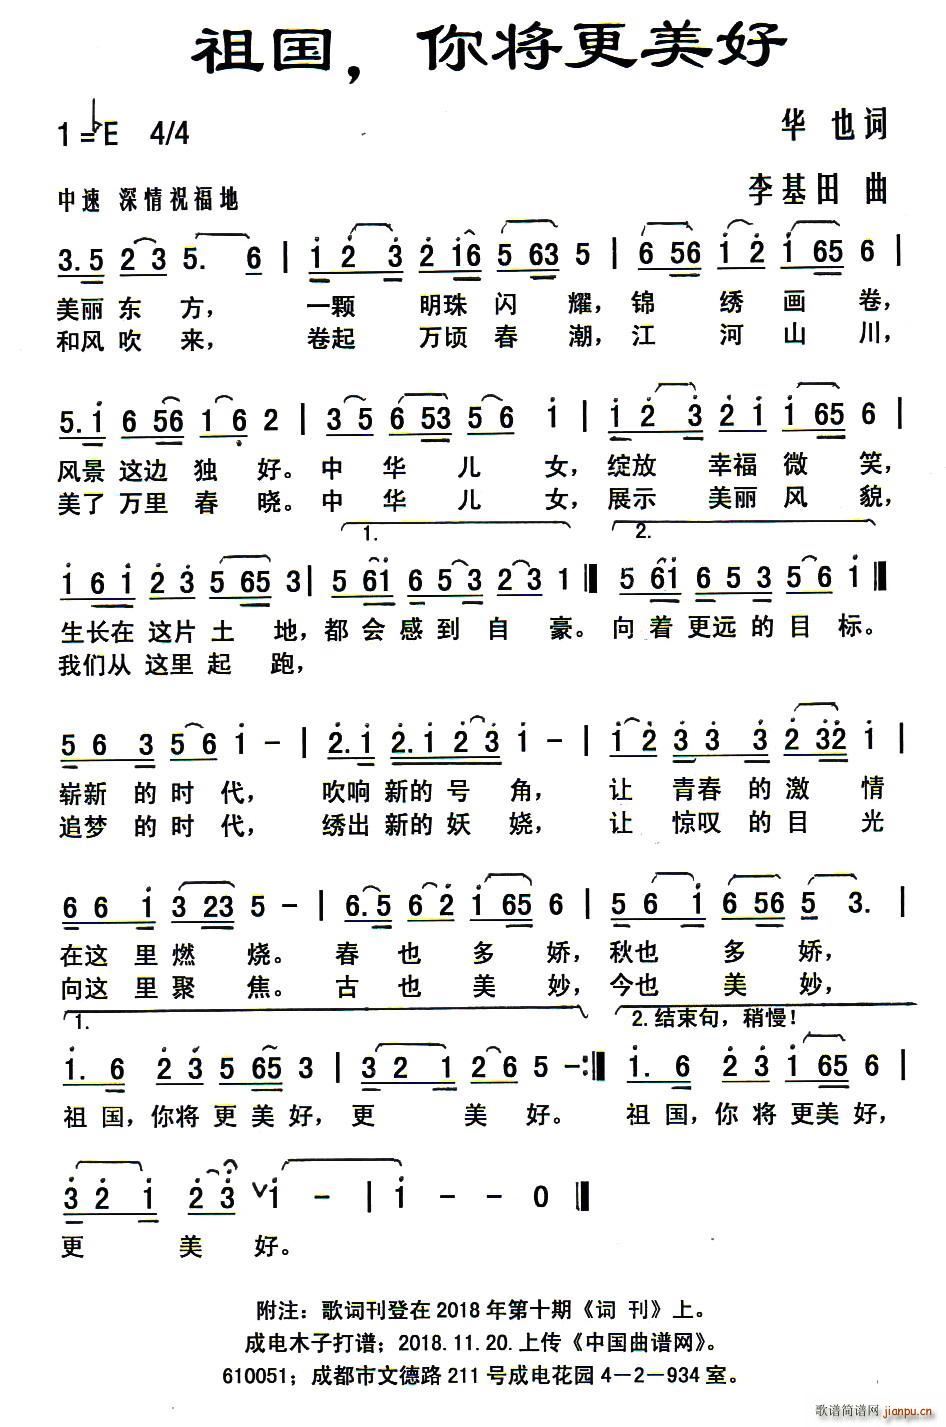 祖国，你将更美好
1=♭E 4/4
华 也 词
中速 深情祝福地
李基田 曲
3.5 23 5. 6 | 1 2 3 2 16 5 63 5 | 6 56 1 2 1 65 6 |
美丽 东 方， 一颗 明珠 闪 耀，锦 绣 画 卷，
和风 吹 来， 卷起 万顷 春 潮，江 河 山 川，
5.1 6 56 1 6 2 | 3 5 6 53 5 6 1 | 1 2 3 2 1 1 65 6 |
风景 这边 独 好。中 华 儿 女，绽放 幸福 微 笑，
美了 万里 春 晓。中 华 儿 女，展示 美丽 风 貌，
1. 2.
1 6 1 2 3 5 65 3 | 5 61 6 5 3 2 3 1 ‖ 5 61 6 5 3 5 6 1 ‖
生长在 这片 土 地，都 会 感 到 自 豪。向 着 更远 的 目 标。
我们从 这里 起 跑，
5 6 3 5 6 1 - | 2.1 2.1 2 3 1 - | 1 2 3 3 3 2 32 1 |
崭新 的 时 代， 吹响 新的 号 角， 让 青春 的 激 情
追梦 的 时 代， 绣出 新的 妖 娆， 让 惊叹 的 目 光
6 6 1 3 23 5 - | 6.5 6 2 1 65 6 | 5 6 1 6 56 5 3. |
在这 里 燃 烧。 春 也 多 娇，秋也 多 娇，
向这 里 聚 焦。 古 也 美 妙，今也 美 妙，
1. 2.结束句，稍慢！
1. 6 2 3 5 65 3 | 3 2 1 2 6 5 -:‖ 1. 6 2 3 1 65 6 |
祖 国，你将 更 美 好，更 美 好。 祖 国，你 将 更美 好，
3 2 1 2 3 ∨1 - | 1 - - 0 ‖
更 美 好。
附注：歌词刊登在2018年第十期《词 刊》上。
成电木子打谱；2018.11.20.上传《中国曲谱网》。
610051；成都市文德路211号成电花园4－2－934室。
歌谱简谱网
jianpu.cn